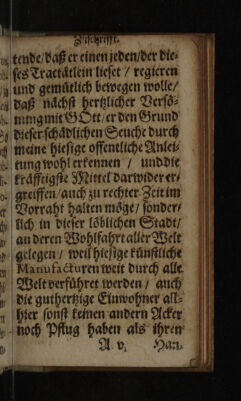 Zuschrifft.
tende/daß er einen jeden/der die-
ses Tractätlein lieset / regieren
und gemütlich bewegen wolle/
daß nächst hertzlicher Versö-
nung mit GOtt/er den Grund
dieser schädlichen Seuche durch
meine hiesige offentliche Anlei-
tung wohl erkennen / und die
kräfftigste Mittel darwider er-
greiffen/auch zu rechter Zeit im
Vorraht halten möge/sonder-
lich in dieser löblichen Stadt/
an deren Wohlfahrt aller Welt
gelegen / weil hiesige künstliche
Manufacturen weit durch alle
Welt verführet werden / auch
die guthertzige Einwohner all-
hier sonst keinen andern Acker
noch Pflug haben als ihren
A. v. Han-